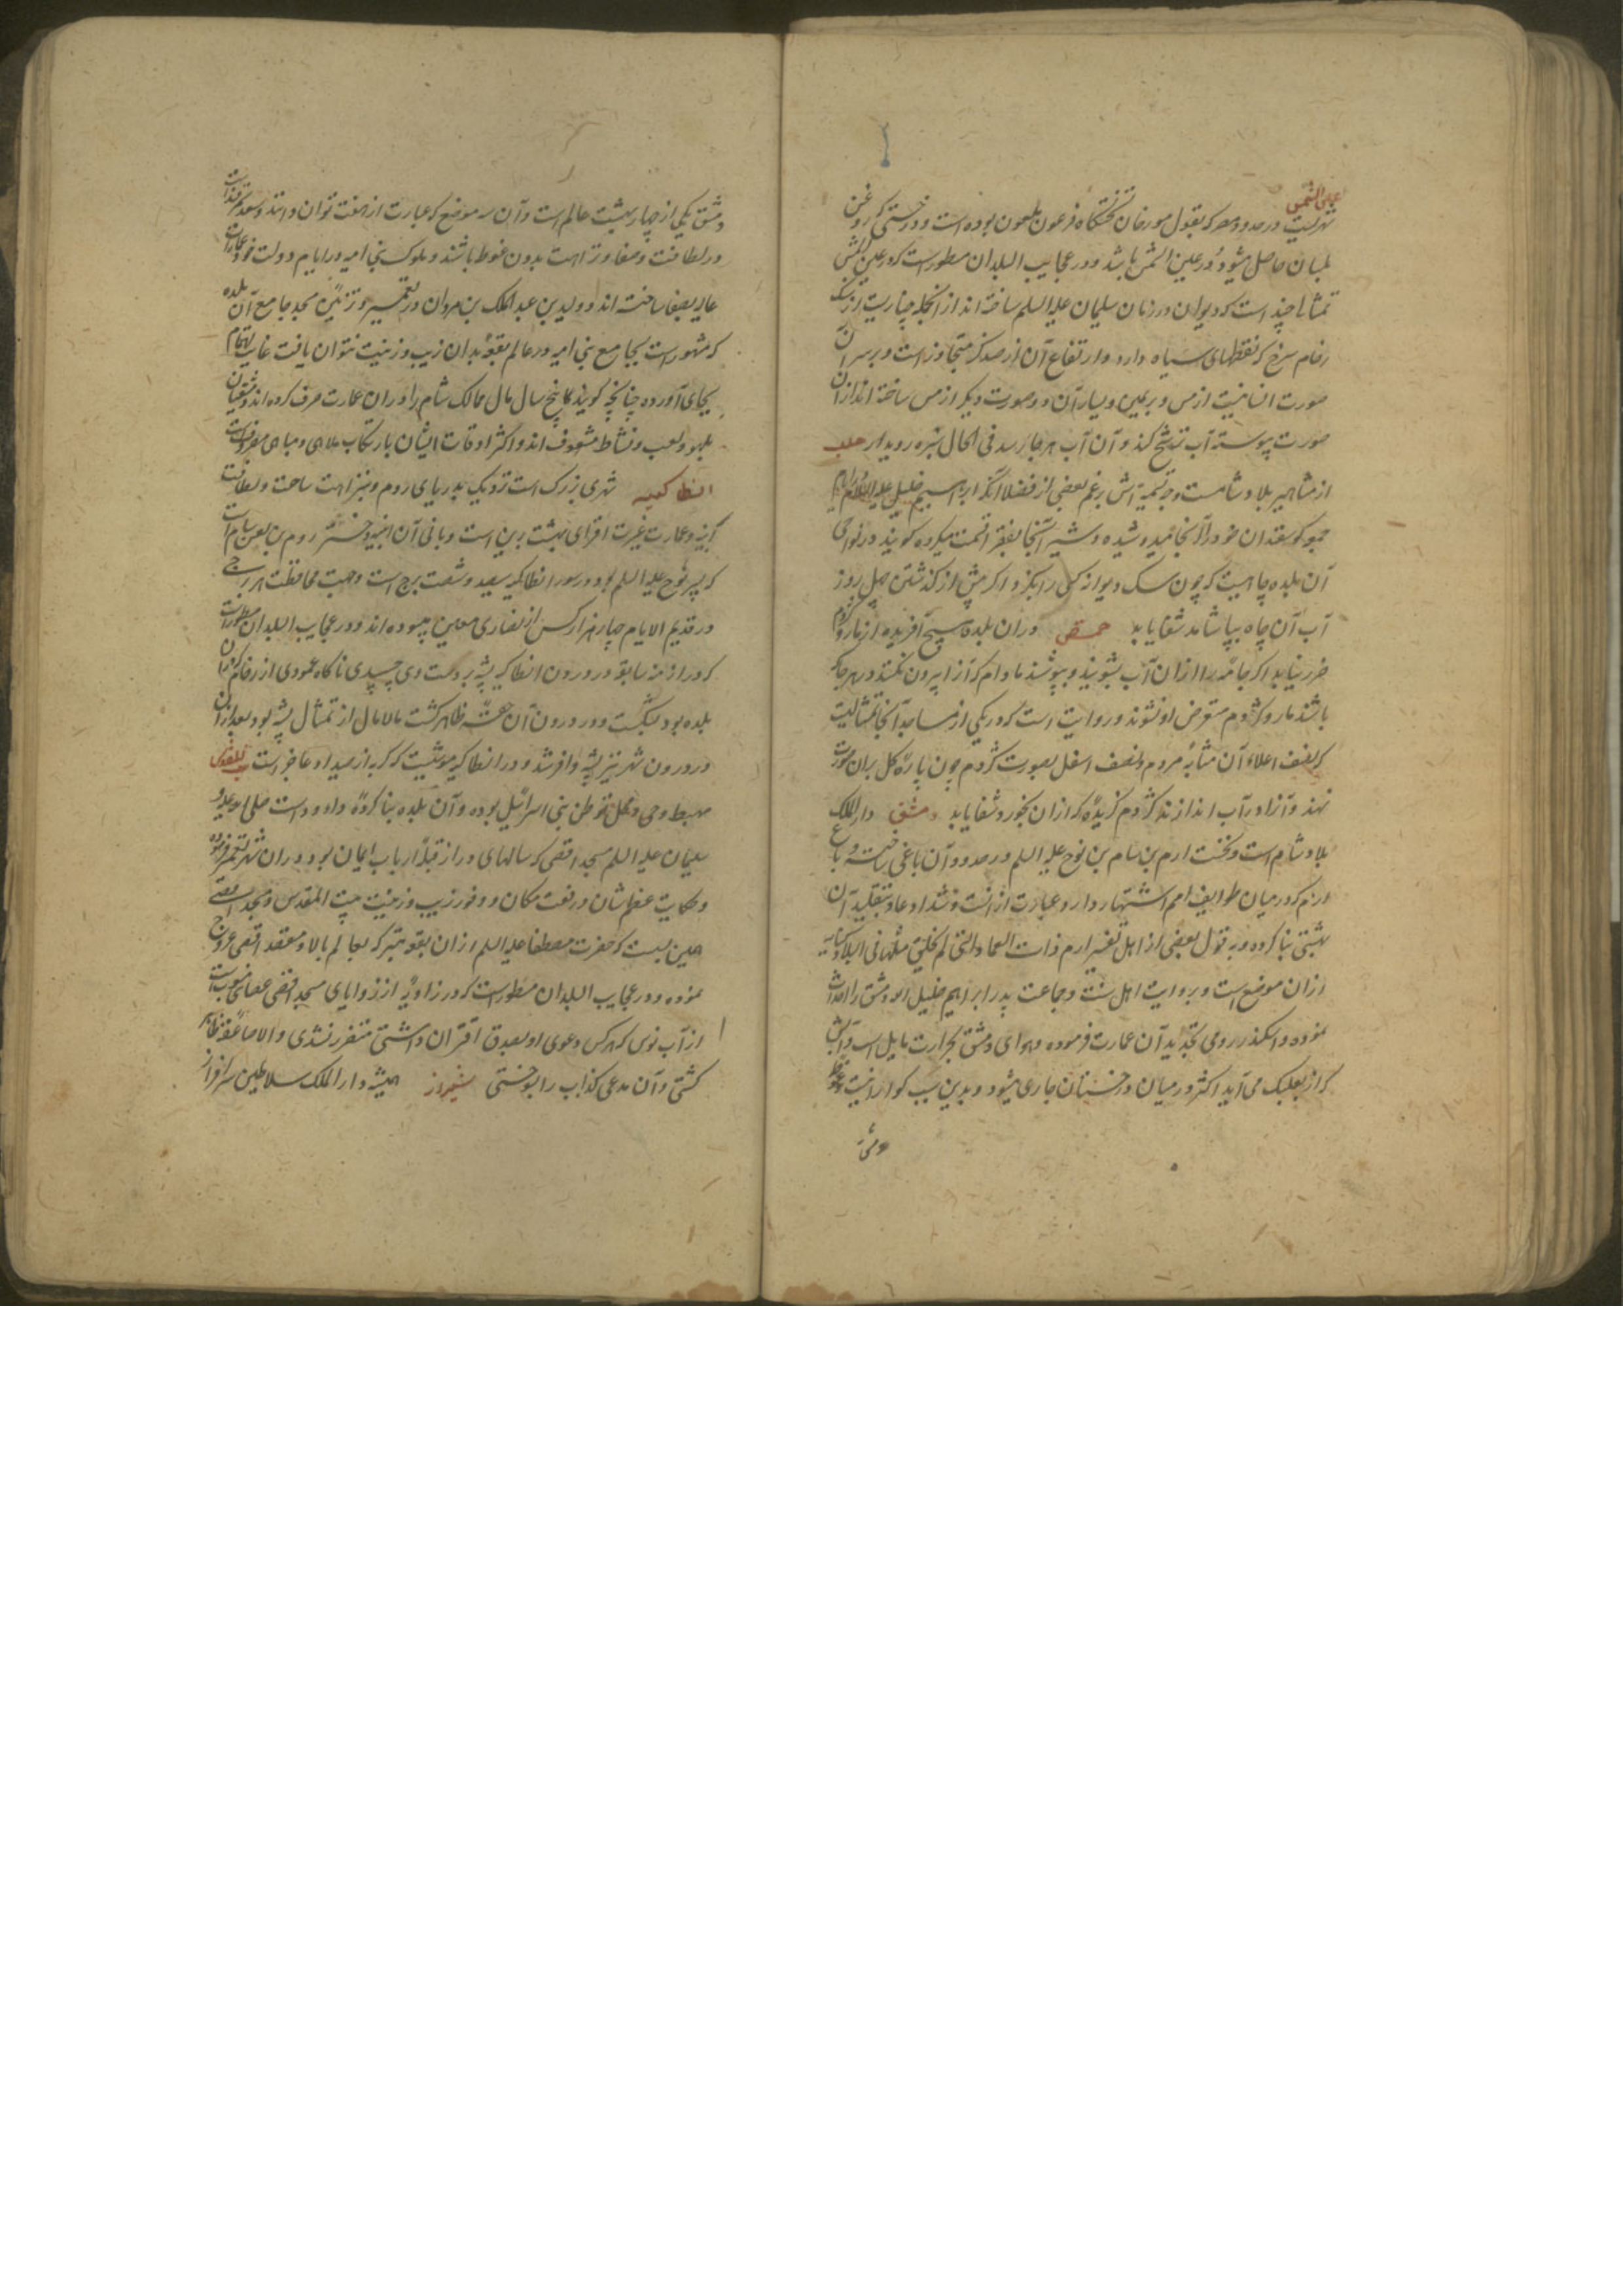 عین الشمس
شهریست در حدود مصر که بقول مورخان تختگاه فرعون ملعون بوده است و درختی که روغن
بلسان حاصل میشود در عین الشمس باشد و در عجایب البلدان مسطور است که در عین الشمس
تمثالی چند است که دیوان در زمان سلیمان علیه السلم ساخته اند از انجمله چناریست از سنگ
رخام سرخ که نقطهای سیاه دارد و ارتفاع آن از صد گز متجاوز است و بر سر آن
صورت انسانیست از مس و بر یمین و یسار آن دو صورت دیگر از مس ساخته اند از آن
صورت پیوسته آب ترشح کند و آن آب هر جا رسد فی الحال سبزه رویداد حلب
از مشاهیر بلاد شامست وجه تسمیه آتش بزعم بعضی از فضلا آنکه ابراهیم خلیل علیه السلام
گوسفندان خود را آنجا میدوشیده و شیر آنجا بفقرا قسمت میکرده گویند در نواحی
آن بلده چاهیست که چون سک دیوانه کسی را بگزد اگر پیش از گذشتن چهل روز
آب آن چاه بیاشامد شفا یابد حمص دران بلده هیچ آفریده از مار و کژدم
ضرر نیابد اگر جامه را از ان آب بشویند و بپوشند مادام که آنرا بیرون نکنند در هر جا که
باشند مار و کژدم متعرض او نشوند و روایت است که در یکی از مساجد آنجا تمثالیست
که نصف اعلاء آن مشابه مردم و نصف اسفل بصورت کژدم چون پاره گل بران صورت
نهند و آنرا در آب اندازند کژدم گزیده که از ان بخورد شفا یابد دمشق دار الملک
بلاد شام است و نخست ارم بن سام بن نوح علیه السلم در حدود آن باغی ساخته و باغ
ارم که در میان طوایف امم اشتهار دارد عبارت از انست و شداد عاد بتقلید آن
بهشتی بنا کرده و به قول بعضی از اهل تفسیر ارم ذات العماد التی لم یخلق مثلها فی البلاد کنایه
از ان موضع است و بروایت اهل سنت و جماعت پدر ابراهیم خلیل الله دمشق را احداث
نموده و اسکندر رومی تجدید آن عمارت فرموده و هوای دمشق بحرارت مایل است و آبش
که از بعلبک می آید اکثر در میان درختان جاری میشود و بدین سبب گوارا نیست و غوطه
دمشق
دمشق یکی از چهار بهشت عالم است و آن سه موضع که عبارت از صفت توان دانست و سغد سمرقند است
در لطافت و صفا و نزاهت بدون غوطه باشند و ملوک بنی امیه در ایام دولت خود عمارات
عالیه بصفا ساخته اند و ولید بن عبد الملک بن مروان در تعمیر و تزئین مسجد جامع آن بلده
که مشهور است بجامع بنی امیه و در عالم بقعه بدان زیب و زینت نتوان یافت غایت اهتمام
بجای آورده چنانچه گویند که پنج سال مال ممالک شام را دران عمارت صرف کرده اند و دمشقیان
بلهو و لعب و نشاط مشعوف اند و اکثر اوقات ایشان بارتکاب ملاهی و مناهی مصروفست
انطاکیه شهری بزرک است نزدیک بدریای روم و بنزاهت ساحت و لطافت
ابنیه و عمارت غیرت افزای بهشت برین است و بانی آن ابنیه دختر روم بن یعن سام است
که پسر نوح علیه السلم بود و سور انطاکیه سیصد و شصت برج است و جهت محافظت هر برجی
در قدیم الایام چهار هزار کس از نصاری معین می‌بوده اند و در عجایب البلدان مسطور است
که در ازمنه سابقه در درون انطاکیه پشه بر دست وی چسپیدی ناگاه عمودی از رخام که در آن
بلده بود بشکست و در درون آن حقه ظاهر کشت مالامال از تمثال پشه بود و بعد از ان
در درون شهر نیز پشه وافر شد و در انطاکیه موشیست که گربه از صید او عاجز است بیت المقدس
مهبط وحی و محل توطن بنی اسرائیل بوده و آن بلده بنا کرده داود است صلی الله علیه و
سلیمان علیه السلم مسجد اقصی که سالهای دراز قبله ارباب ایمان بود دران شهر تعمیر فرموده
و حکایت عظم شان و رفعت مکان و وفور زیب و زینت بیت المقدس و مسجد اقصی
همین بست که حضرت مصطفا علیه السلم از ان بقعه متبرکه بعالم بالا و مقعد اقصی عروج
نموده و در عجایب البلدان مسطور است که در زاویه از زوایای مسجد اقصی عصائی منصوب است
از آبنوس که هر کس دعوی او بصدق اقتران داشتی متضرر نشدی و الا صاعقه ظاهر
کشتی و آن مدعی کذاب را بسوختی شیراز همیشه دار الملک سلاطین سرافراز